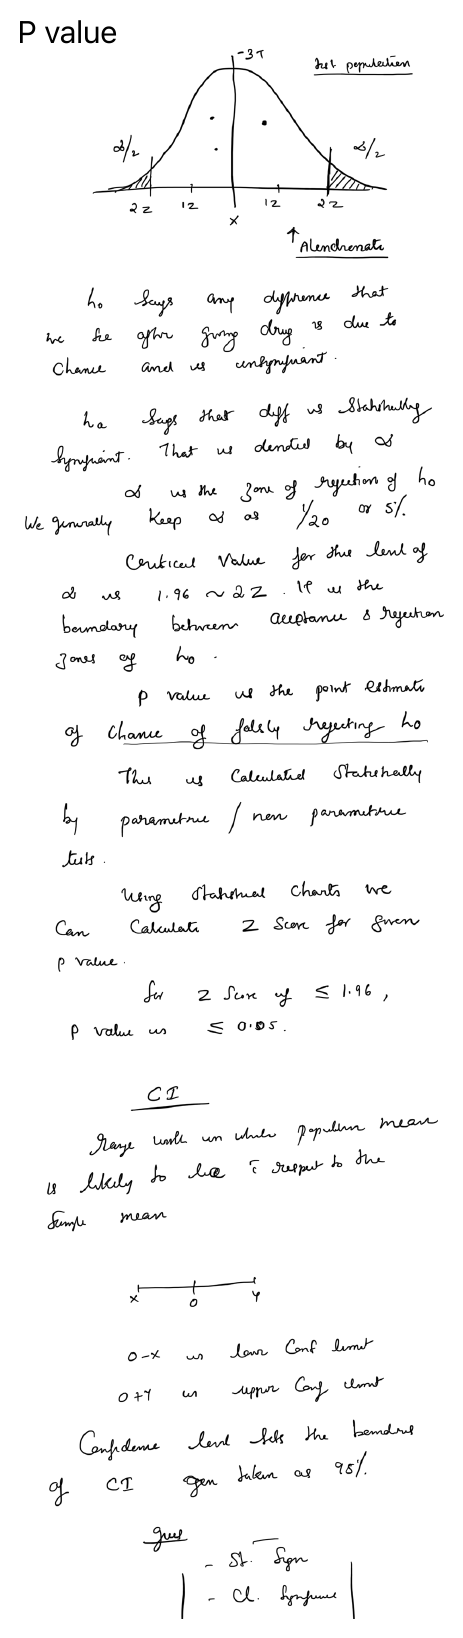 P value
-3T
test population
α/2
α/2
2Z
1Z
x
1Z
2Z
↑ Alendronate
ho says any difference that
we see after giving drug is due to
chance and is
ha says that diff is statistically
significant. That is denoted by α
α is the zone of rejection of ho
We generally keep α as 1/20 or 5%
Critical Value for this level of
α is 1.96 ~ 2Z. It is the
boundary between acceptance & rejection
zones of ho.
P value is the point estimate
of chance of falsly rejecting ho
This is calculated statistically
by parametric / non parametric
tests.
Using statistical charts we
can calculate Z score for given
p value.
for Z score of ≤ 1.96,
P value is ≤ 0.05.
CI
Range with in which population mean
is likely to lie c̄ respect to the
sample mean
x
0
y
0-x is lower Conf limit
0+y is upper Conf limit
Confidence level sets the
of CI gen taken as 95%.
gives
- St. Sign
- Cl. Significance